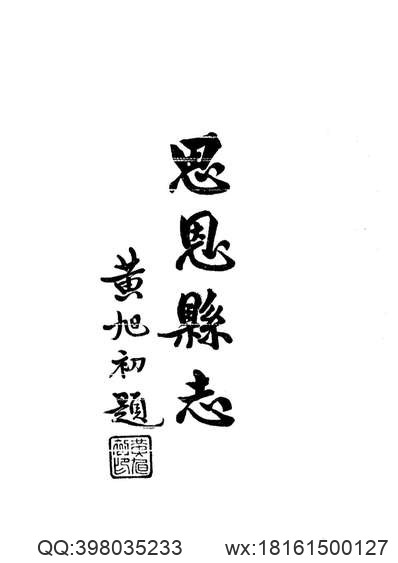 思恩縣志
黃旭初題
黃旭初印
QQ:398035233 wx:18161500127